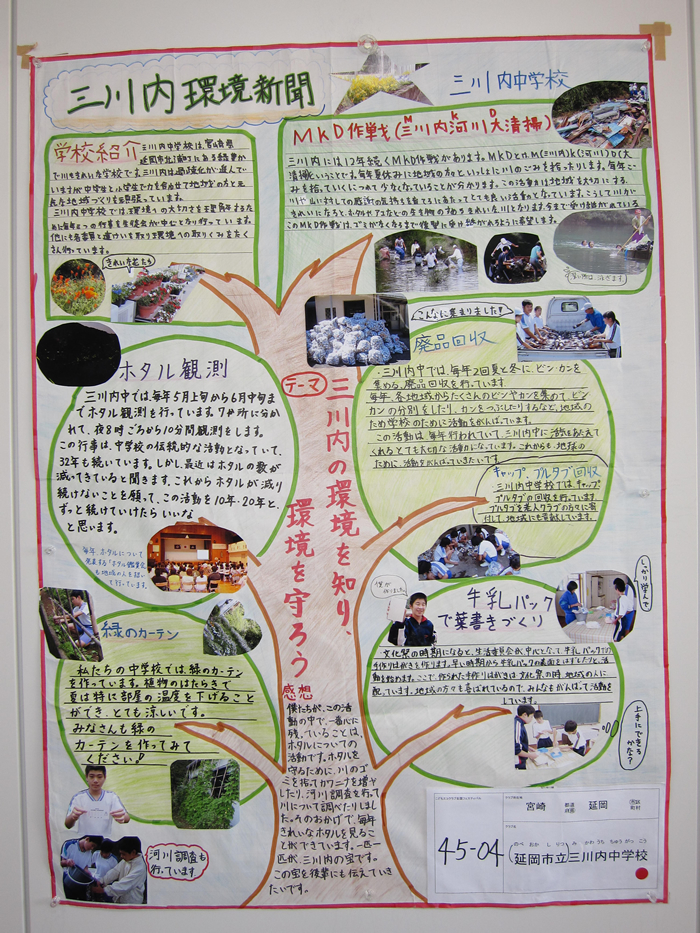 三川内環境新聞
三川内中学校
学校紹介
三川内中学校は、宮崎県
延岡市北浦町にある緑豊か
MKD作戦(三川内河川大清掃)
M K D
三川内には12年続くMKD作戦があります。MKDとは、M(三川内)K(河川)D(大
清掃)ということです。毎年夏休みに地域の方といっしょに川のごみを拾ったりします。毎年ご
みを拾っていくにつれて少なくなっていることが分かります。この活動は地域を大切にする
きれいな花たち
こんなに集まりました!!
廃品回収
三川内中では、毎年2回夏と冬に、ビン・カンを
集める、廃品回収を行っています。
毎年、各地域からたくさんのビンやカンを集めて、ビン
カンの分別をしたり、カンをつぶしたりするなど、地域の
ため学校のために活動をがんばっています。
この活動は、毎年行われていて、三川内中に活気をあたえて
くれるとても大切な活動になっています。これからも、地球の
ために、活動をがんばっていきたいです。
キャップ、プルタブ回収
三川内中学校では、キャップ、
プルタブの回収を行っています。
ホタル観測
三川内中では、毎年5月上旬から6月中旬ま
でホタル観測を行っています。7ヶ所に分か
れて、夜8時ごろから10分間観測をします。
この行事は、中学校の伝統的な活動となっていて、
32年も続いています。しかし、最近はホタルの数が
減ってきていると聞きます。これからホタルが減り
続けないことを願って、この活動を10年・20年と、
ずっと続けていけたらいいな
と思います。
毎年、ホタルについて
発表する「ホタル鑑賞会」
も地域の人を招い
て行っています。
テーマ
三川内の環境を知り、
環境を守ろう
緑のカーテン
私たちの中学校では、緑のカーテン
を作っています。植物のはたらきで
夏は特に部屋の温度を下げること
ができ、とても涼しいです。
みなさんも緑の
カーテンを作ってみて
ください!
河川調査も
行っています
感想
僕たちが、この活
動の中で、一番心に
残っていることは、
ホタルについての
活動です。ホタルを
守るために、川のゴ
ミを拾ってカワニナを増や
したり、河川調査を行って
川について調べたりしまし
た。そのおかげで、毎年
きれいなホタルを見るこ
とができています。一匹一
匹が、三川内の宝です。
この宝を後輩にも伝えていき
たいです。
僕が作りました
牛乳パック
で葉書きづくり
しっかり学んで
文化祭の時期になると、生活委員会が中心となって、牛乳パックで
手作りはがきを作ります。早い時期から牛乳パックの表面をはずしたりと、活
動を始めます。ここで、作られた手作りはがきは、文化祭の時、地域の人に
配っています。地域の方々も喜ばれているので、みんなもがんばって活動を
しています。
上手にできる
かな?
45-04
宮崎 都道府県 延岡 市区町村
のべおかしりつ みかわうちちゅうがっこう
延岡市立三川内中学校